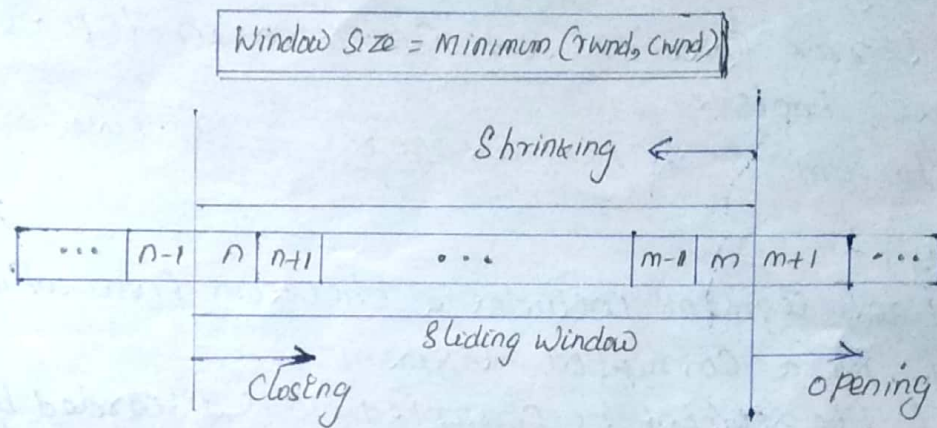 Window Size = Minimum (rwnd, cwnd)
Shrinking
... n-1 n n+1 ... m-1 m m+1 ...
Sliding window
Closing
Opening